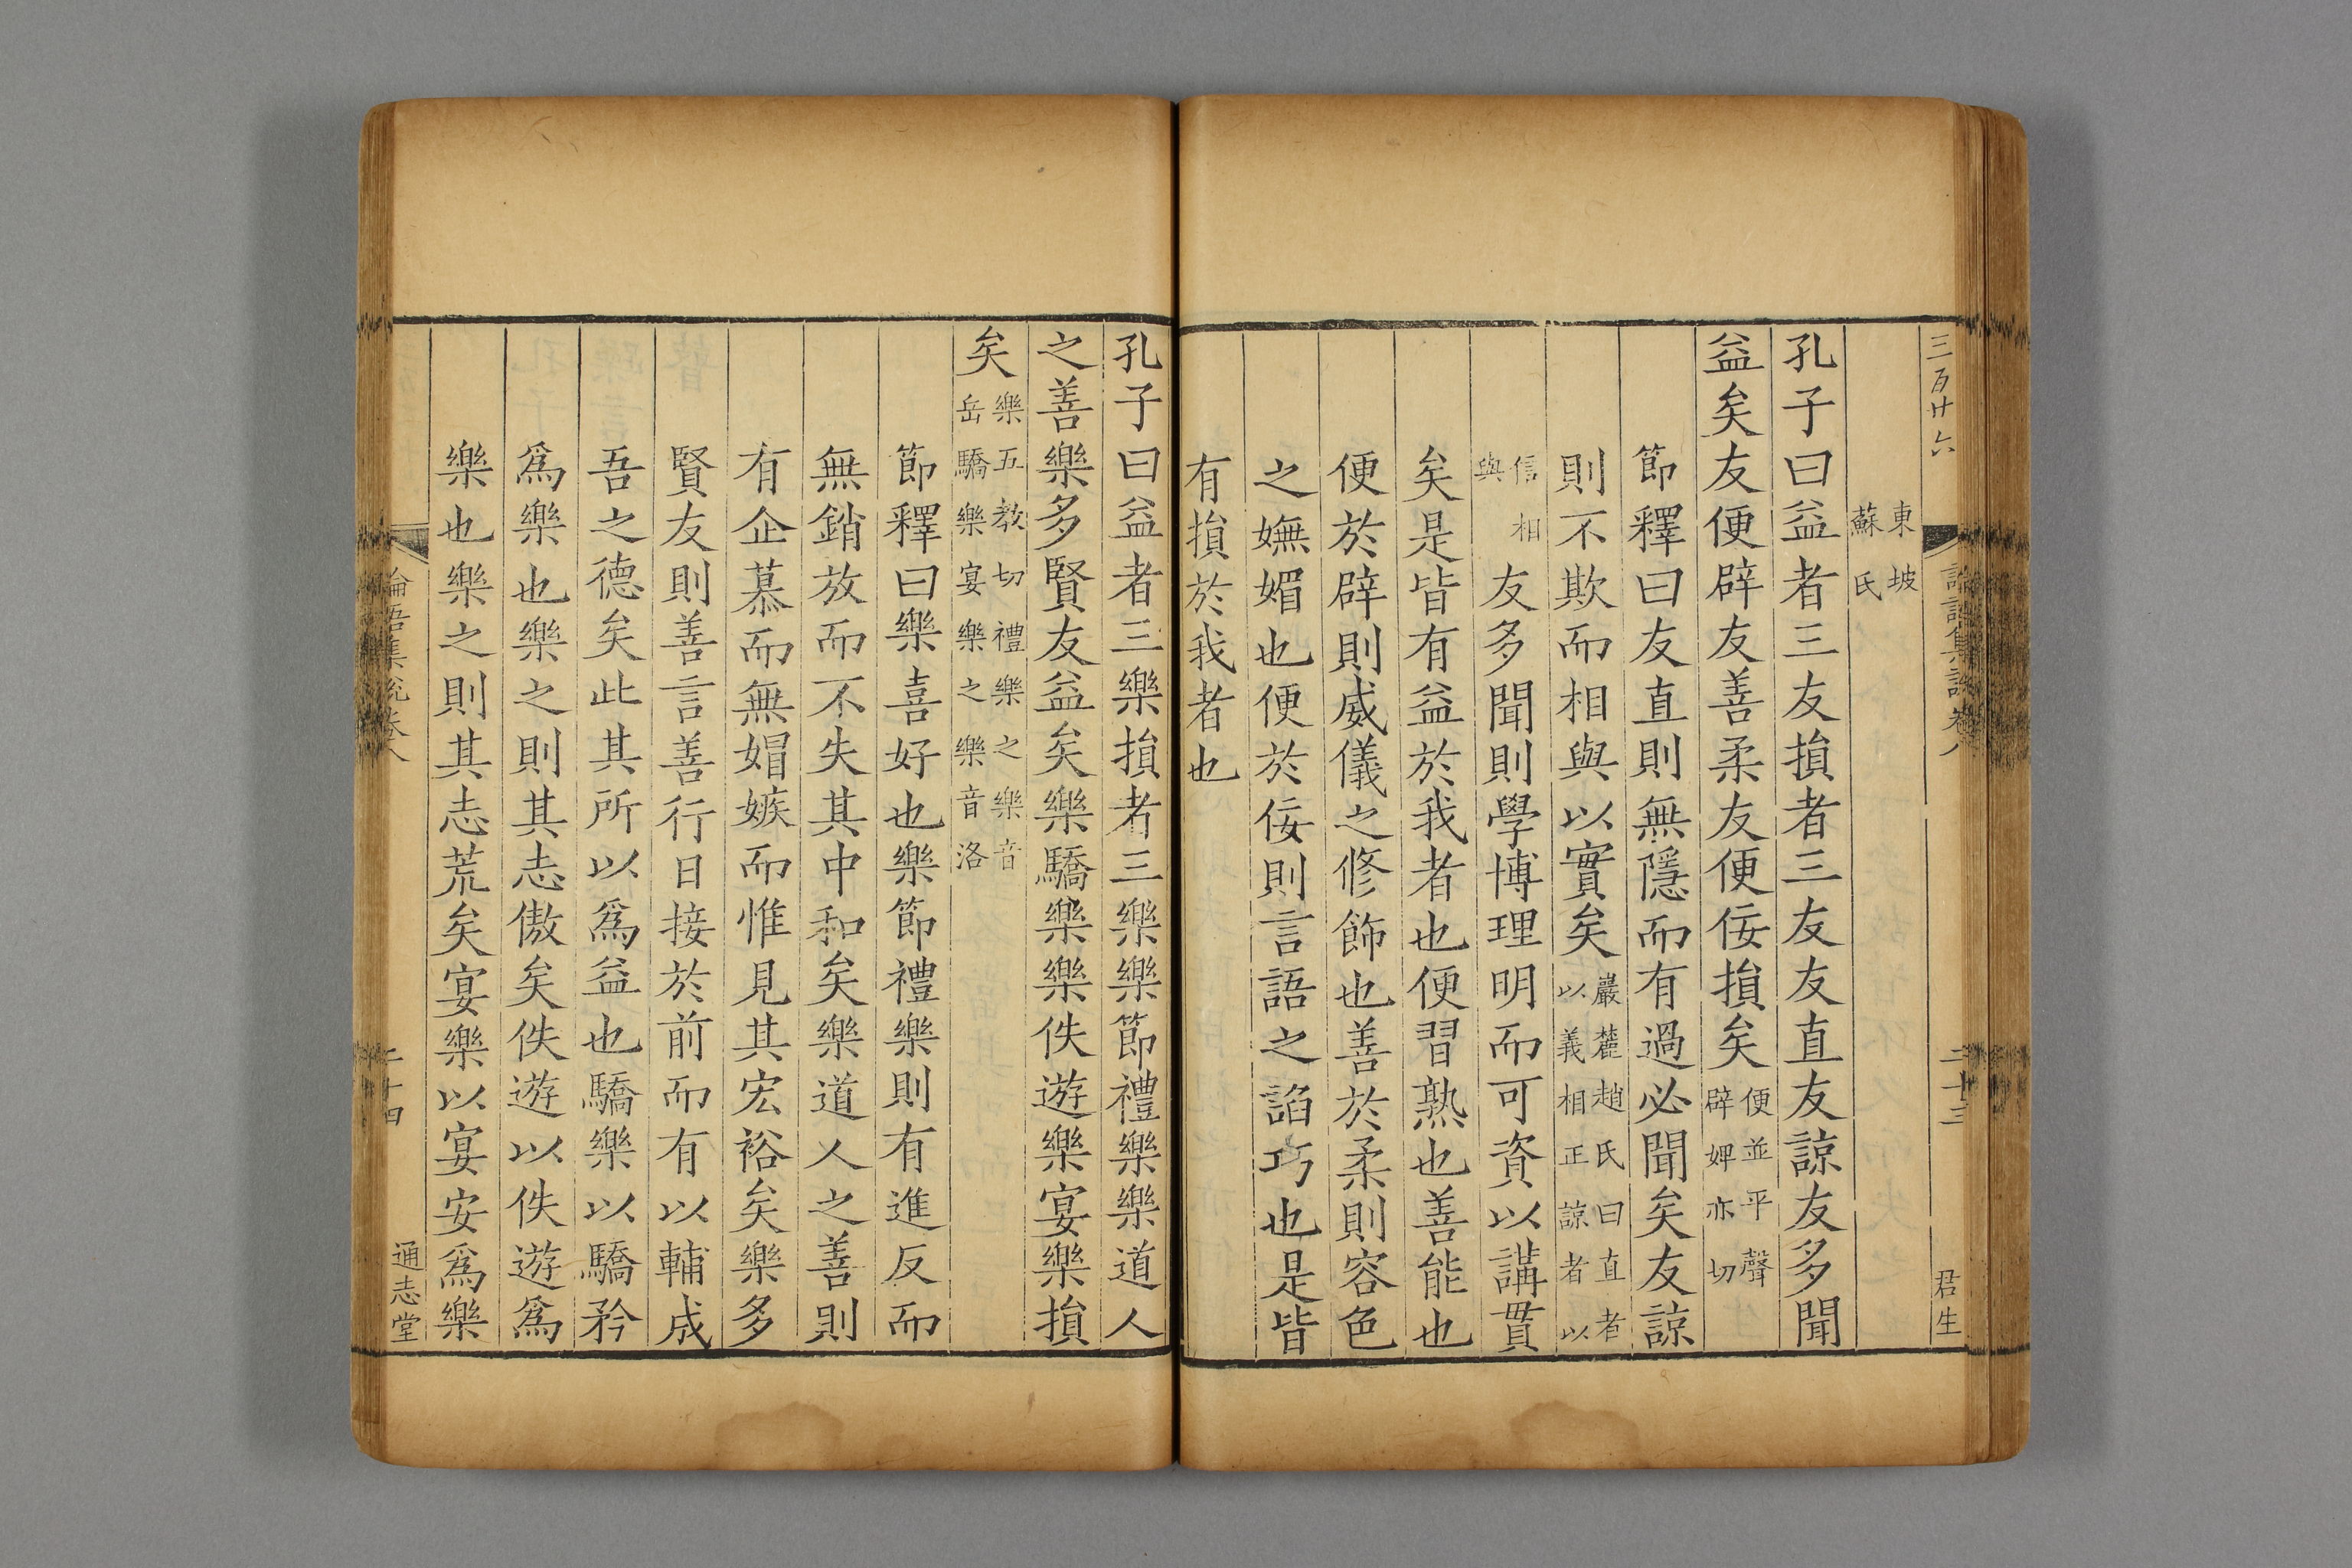 三百廿六
論語集說卷八
二十三
君生
東坡
蘇氏
孔子曰益者三友損者三友友直友諒友多聞
益矣友便辟友善柔友便佞損矣便並平聲辟婢亦切
節釋曰友直則無隱而有過必聞矣友諒
則不欺而相與以實矣巖麓趙氏曰直者以義相正諒者以
信相與友多聞則學博理明而可資以講貫
矣是皆有益於我者也便習熟也善能也
便於辟則威儀之修飾也善於柔則容色
之嫵媚也便於佞則言語之諂巧也是皆
有損於我者也
孔子曰益者三樂損者三樂樂節禮樂樂道人
之善樂多賢友益矣樂驕樂樂佚遊樂宴樂損
矣樂五教切禮樂之樂音岳驕樂宴樂之樂音洛
節釋曰樂喜好也樂節禮樂則有進反而
無銷放而不失其中和矣樂道人之善則
有企慕而無媢嫉而惟見其宏裕矣樂多
賢友則善言善行日接於前而有以輔成
吾之德矣此其所以爲益也驕樂以驕矜
爲樂也樂之則其志傲矣佚遊以佚遊爲
樂也樂之則其志荒矣宴樂以宴安爲樂
論語集說卷八
二十四
通志堂